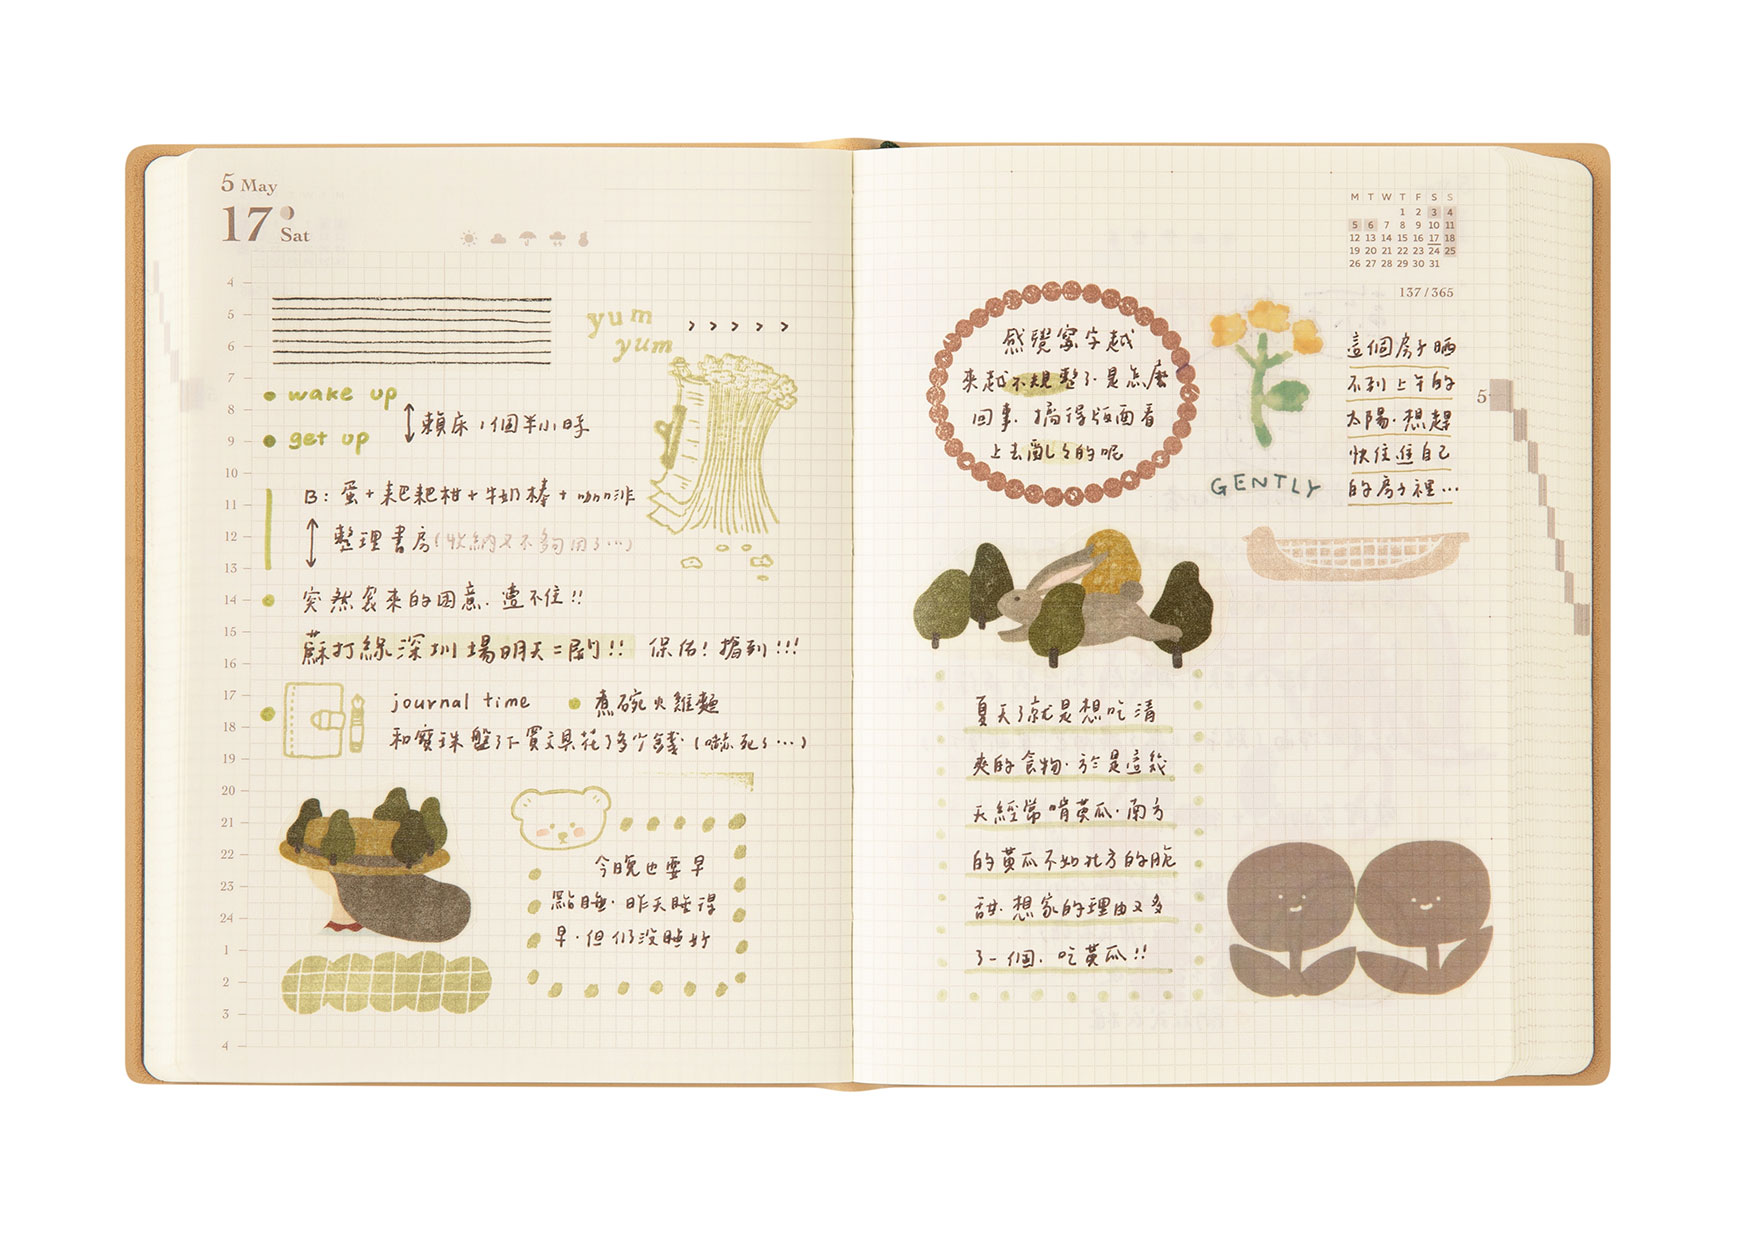 5 May
17
Sat
4
5
6
7
8
9
10
11
12
13
14
15
16
17
18
19
20
21
22
23
24
1
2
3
4
yum
yum
wake up
get up
賴床1個半小時
B: 蛋+耙耙柑+牛奶棒+咖啡
整理書房(收納又不多夠用了…)
突然襲來的困意.遭不住!!
蘇打綠深圳場明天二刷!! 保佑!搶到!!!
journal time
煮碗火雞麵
和寶珠盤了下買文具花了多少錢(嚇死了…)
今晚也要早
點睡.昨天睡得
早.但仍沒睡好
M T W T F S S
1 2 3 4
5 6 7 8 9 10 11
12 13 14 15 16 17 18
19 20 21 22 23 24 25
26 27 28 29 30 31
137/365
5
感覺寫字越
來越不規整了.是怎麼
回事.搞得版面看
上去亂亂的呢
GENTLY
這個房子晒
不到上午的
太陽.想趕
快住進自己
的房子裡…
夏天了就是想吃清
爽的食物.於是這幾
天經常啃黃瓜.南方
的黃瓜不如北方的脆
甜.想家的理由又多
了一個.吃黃瓜!!